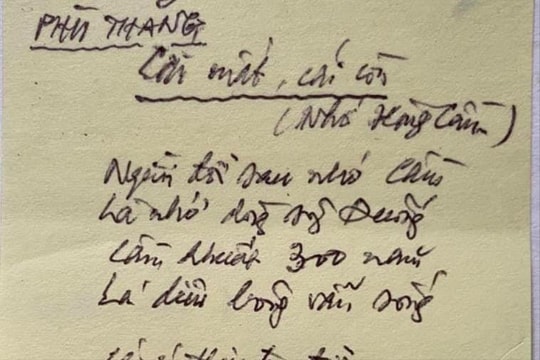 PHÙ THĂNG
Cái mất, cái còn
(Nhớ Hoàng Cầm)
Người đời sau nhớ Cầm
Là nhớ dòng sông Đuống
Cầm khuất 300 năm
Lá diêu bông vẫn sống